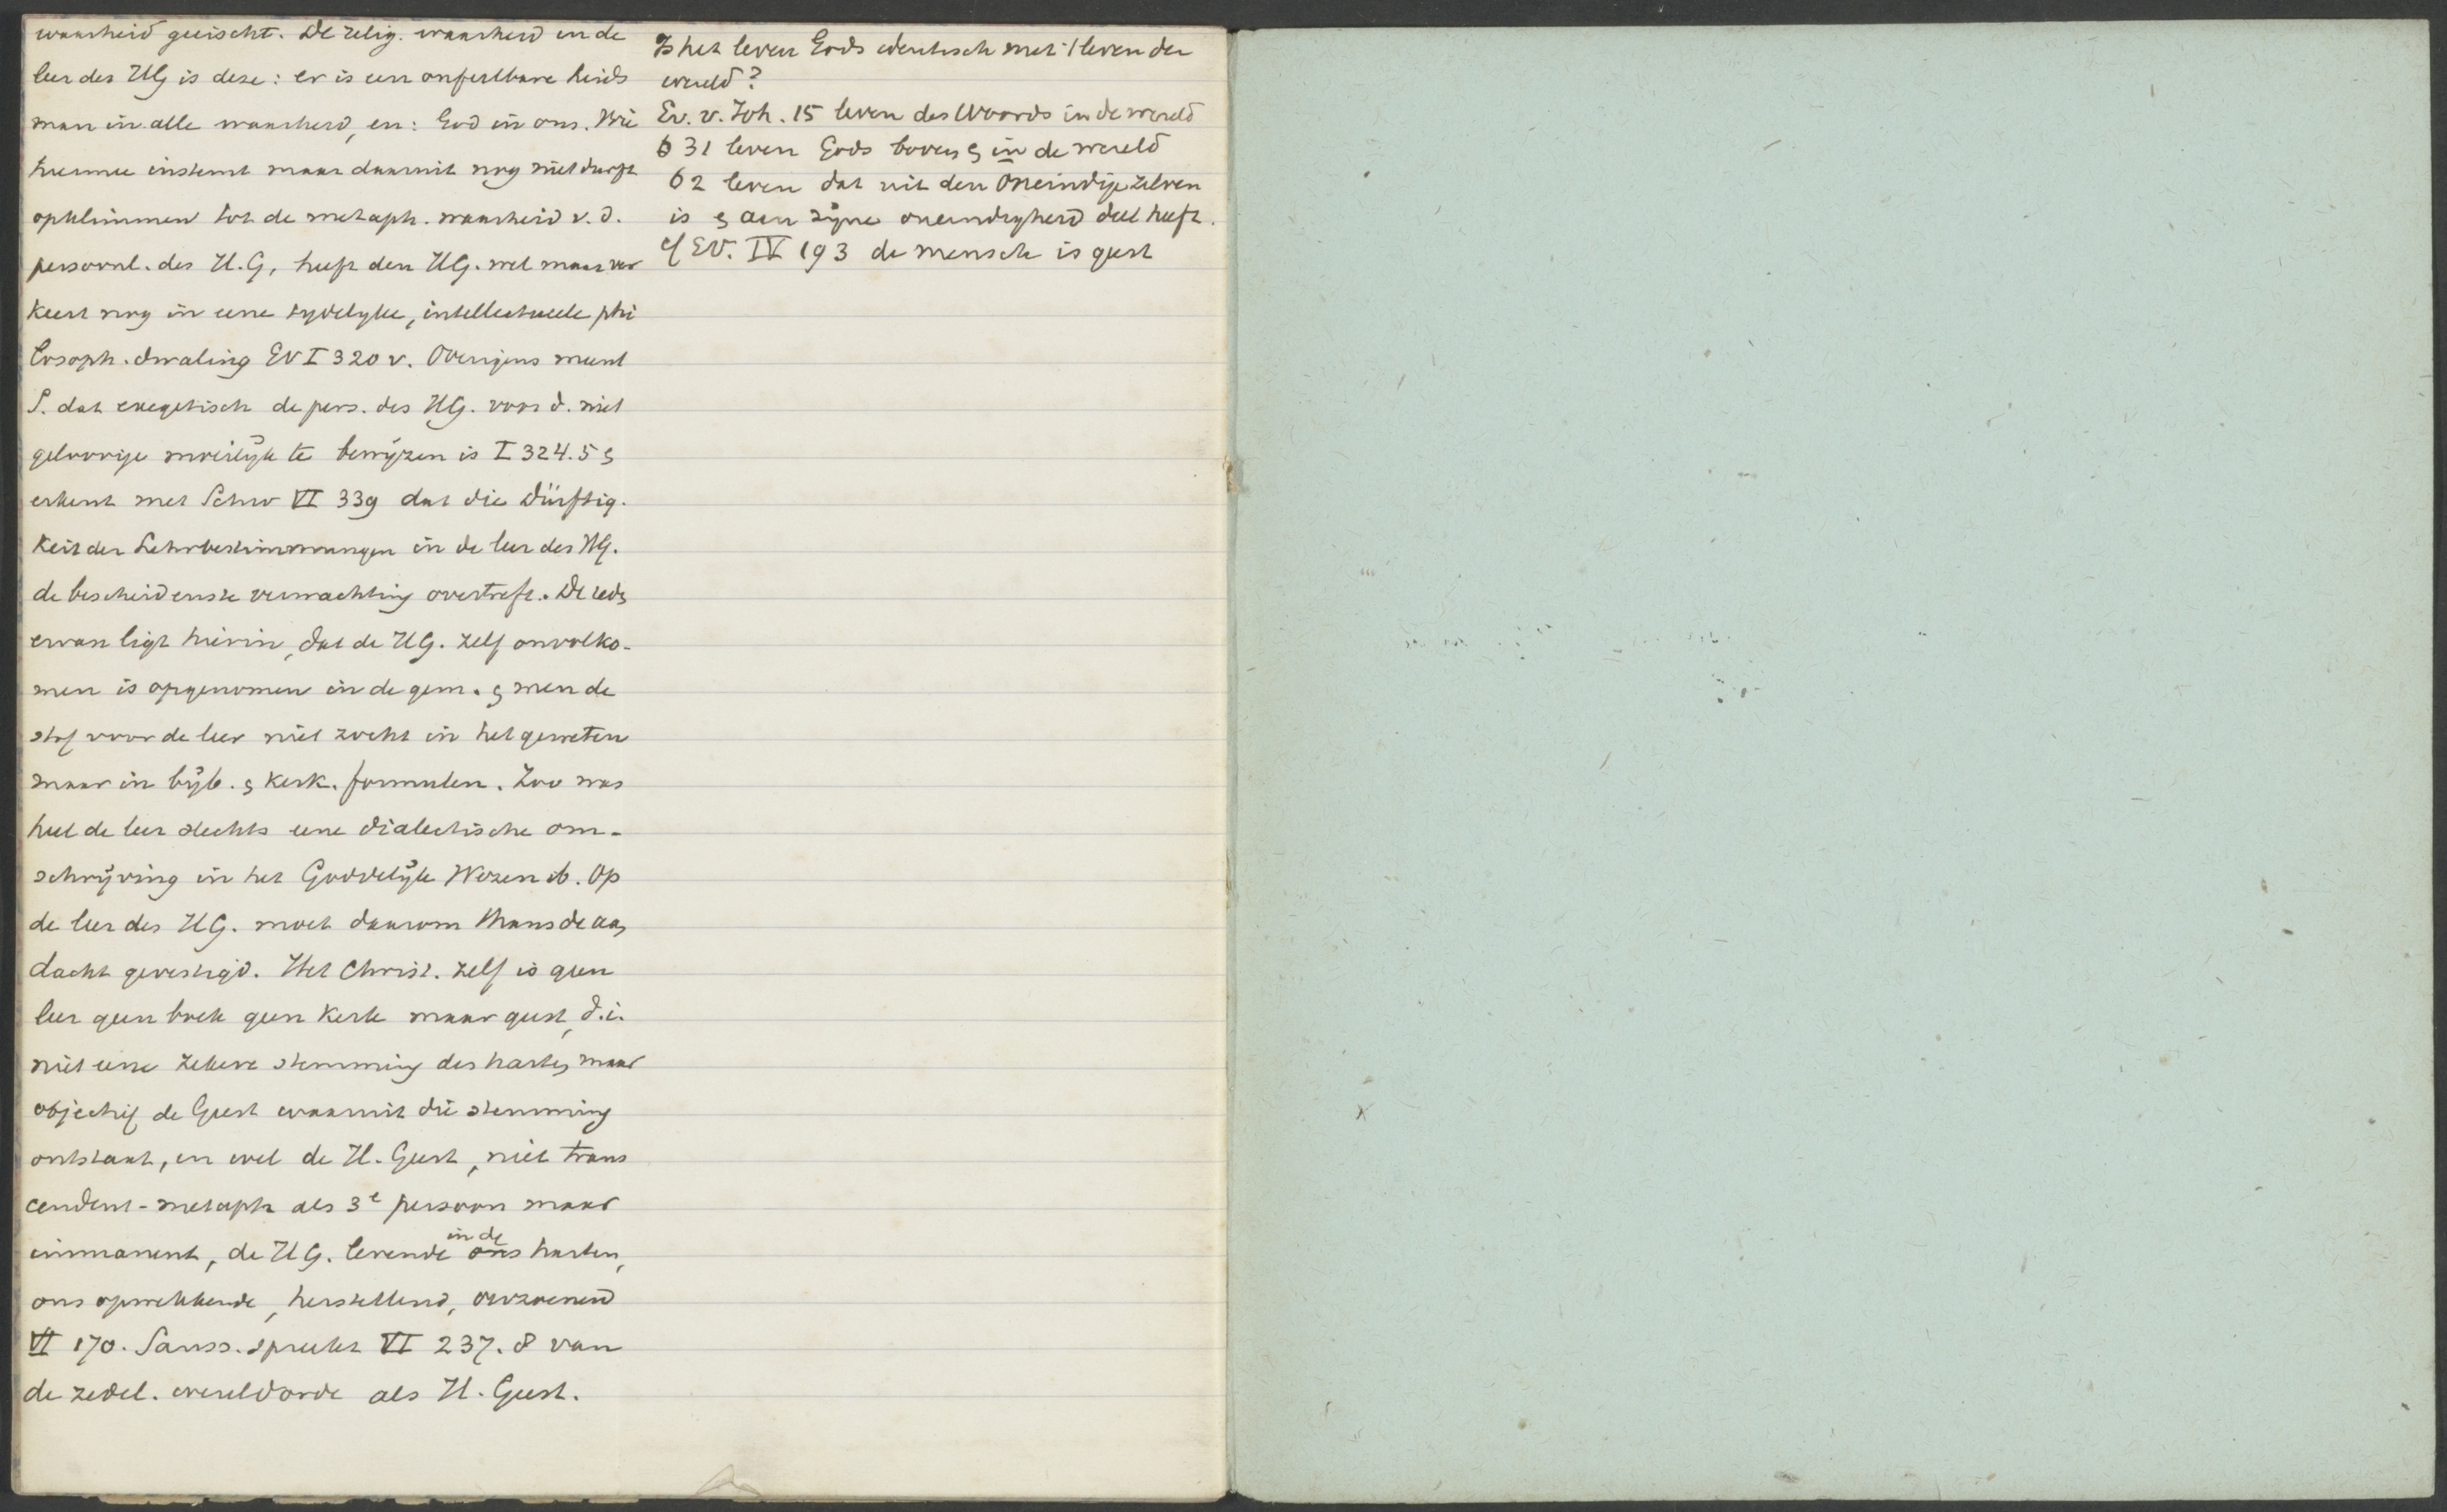 waarheid geëischt. De relig. waarheid in de
leer des HG is deze: er is een onfeilbare leids
man in alle waarheid, en: God in ons. Wie
hiermee instemt maar daaruit nog niet durft
opklimmen tot de metaph. waarheid v. d.
persoonl. des H.G, heeft den HG. wel maar ver
keert nog in eene tydelyke, intellectueele phi
losoph. dwaling EV I 320 v. Overigens meent
S. dat exegetisch de pers. des HG. voor d. niet
geloovige moeilijk te bewijzen is I 324.5 &
erkent met Schw VI 339 dat die Dürftig.
keit der Lehrbestimmungen in de leer des HG.
de bescheidenste verwachting overtreft. De rede
ervan ligt hierin, dat de HG. zelf onvolko-
men is opgenomen in de gem. & men de
stof voor de leer niet zocht in het geweten
maar in bijb. & kerk. formulen. Zoo was
heel de leer slechts eene dialectische om-
schrijving in het Goddelijk Wezen ib. Op
de leer des HG. moet daarom thans de aan
dacht gevestigd. Het Christ. zelf is geen
leer geen boek geen kerk maar geest, d.i.
niet eene zekere stemming des harten maar
objectief de Geest waaruit die stemming
ontstaat, en wel de H. Geest, niet trans
cendent-metaph als 3e persoon maar
immanent, de HG. levende in de ons harten,
ons opwekkende, herstellend, verzoenend
VI 170. Sauss. spreekt VI 237.8 van
de zedel. wereldorde als H. Geest.
Is het leven Gods identisch met 't leven der
wereld?
Ev. v. Joh. 15 leven des Woords in de wereld
6 31 leven Gods boven & in de wereld
62 leven dat uit den Oneindige zelven
is & aan zijne oneindigheid deel heeft.
cf EV. IV 193 de mensch is geest